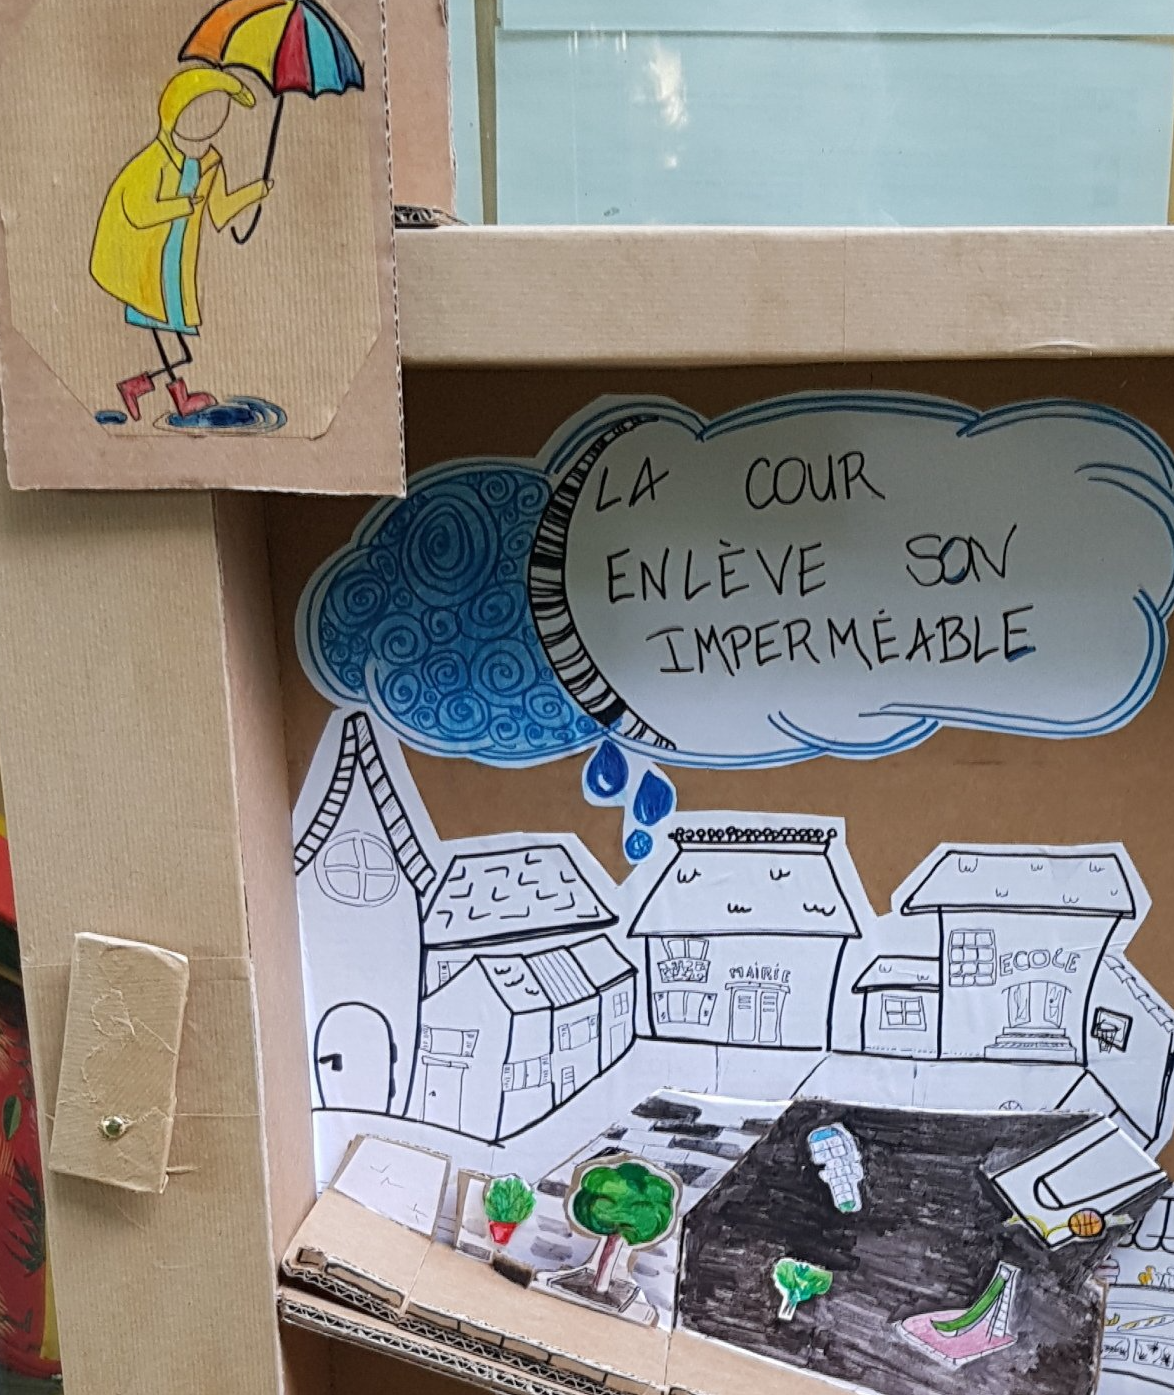 LA COUR
ENLÈVE SON
IMPERMÉABLE
MAIRIE
ECOLE